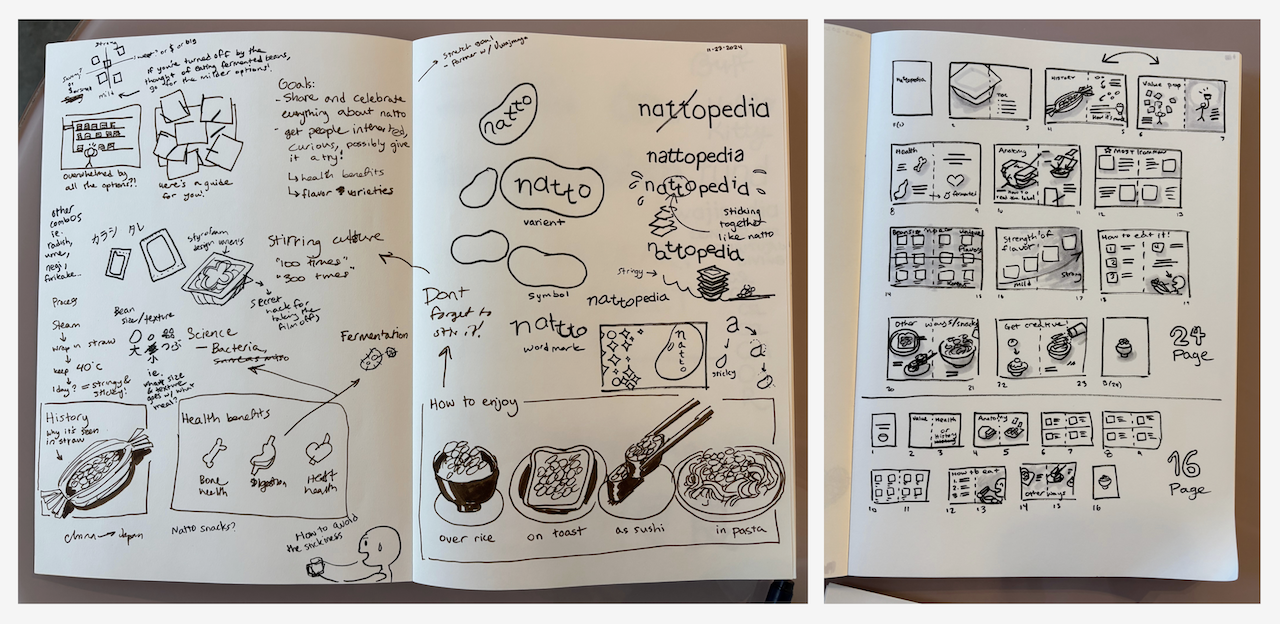 strong
mild
if you're turned off by the
thought of eating fermented beans,
go for the milder options!.
overwhelmed by
all the options?!
here's a guide
for you!
Goals:
- Share and celebrate
everything about natto
- get people interested,
curious, possibly give
it a try!
↳ health benefits
↳ flavor & varieties
other
combos
ie.
radish,
negi,
カラシ タレ
Stirring culture
"100 times"
"300 times"
secret
hack for
taking the
film off
Process
Steam
↓
wrap in straw
↓
keep 40°C
↓
1 day? = stringy &
sticky!
Bean
size/texture
大 小 つぶ
ie.
what size
& texture
goes w/ what
meal?
Science
— Bacteria
Fermentation
History
Why it's seen
in straw
China → Japan
Health benefits
Bone
health
Digestion
Heart
health
Natto snacks?
How to avoid
the stickiness
- Stretch goal
- Partner w/ Uwajimaya
11-27-2024
natto
natto
varient
symbol
natto
wordmark
Dont
forget to
stir it!
nattopedia
nattopedia
nattopedia
sticking
together
like natto
nattopedia
stringy →
nattopedia
natto
a
a
sticky
How to enjoy
over rice
on toast
as sushi
in pasta
Nattopedia
TOC
HISTORY
How it's made
Value prop
2 3 4 5 6 7
Health
fermented
Anatomy
how to
read the label
☆ Most common
8 9 10 11 12 13
flavors
Strength of
flavor
mild
strong
How to eat it!
1
2
3
14 15 16 17 18 19
Other ways/snacks
Get creative!
24
Page
20 21 22 23
Value
Health
or
History
Anatomy
1 2 3 4 5 6 7 8 9
How to eat
other ways
16
Page
10 11 12 13 14 15 16